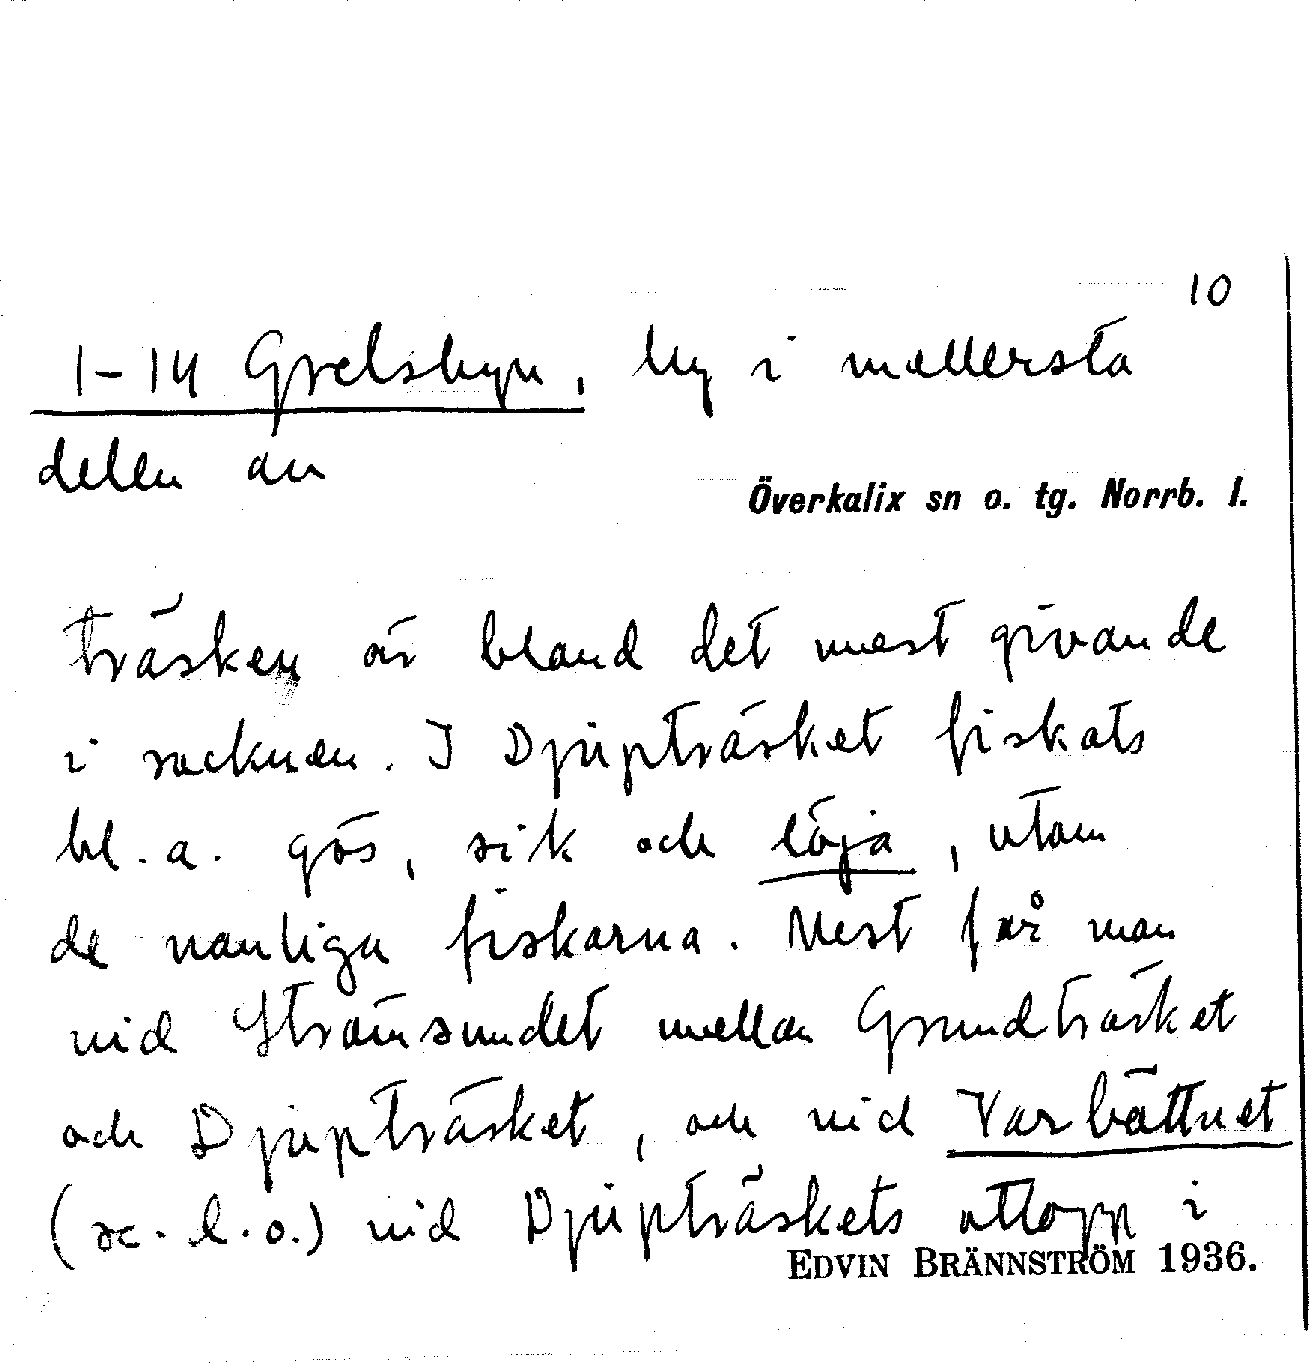 10
1-14 Grelsbyn, by i mellersta
delen av
Överkalix sn o. tg. Norrb. l.
träsken är bland det mest givande
i socknen. I Djupträsket fiskats
bl. a. gös, sik och löja, utom
de vanliga fiskarna. Mest får man
vid Strömsundet mellan Grundträsket
och Djupträsket, och vid Varbättnet
(se l. o.) vid Djupträskets utlopp i
EDVIN BRÄNNSTRÖM 1936.